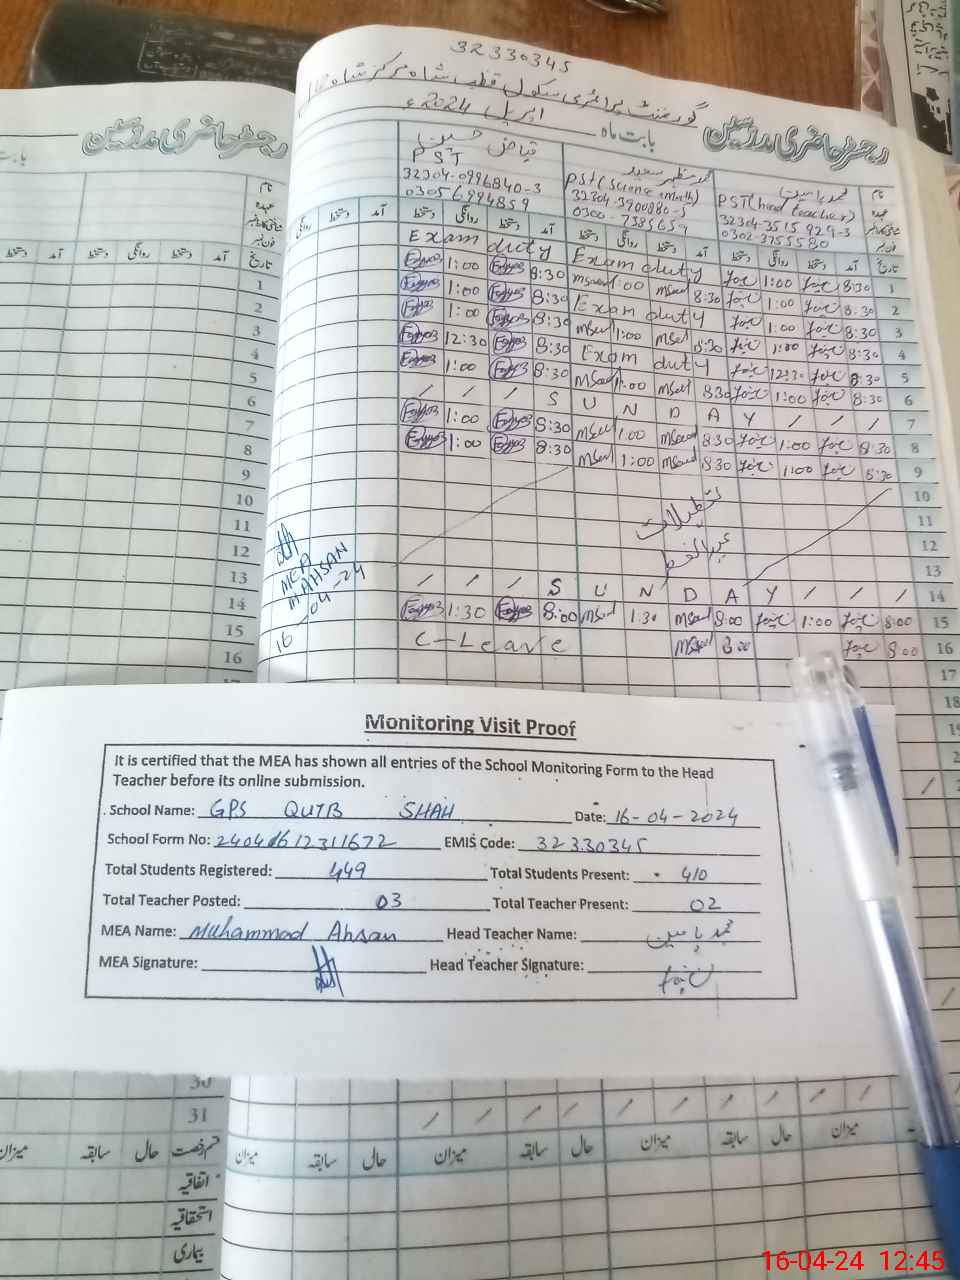 32330345
گورنمنٹ پرائمری سکول قطب شاہ مرکز شاہ
رجسٹر حاضری مدرسین بابت ماہ اپریل 2024ء
رجسٹر حاضری مدرسین
نام محمد یاسین
PST (head teacher)
32304-3515929-3
0302-3755580
سعید
PST (Science Math)
32304-3900880-5
0300-7385659
فیاض حسین
PST
32304-0996840-3
03056994859
تاریخ آمد دستخط روانگی دستخط آمد دستخط روانگی دستخط آمد دستخط روانگی دستخط
1 8:30 1:00 Exam duty Exam duty
2 8:30 1:00 8:30 1:00 8:30 1:00
3 8:30 1:00 Exam duty 8:30 1:00
4 8:30 1:00 8:30 1:00 8:30 1:00
5 8:30 12:30 Exam duty 8:30 12:30
6 8:30 1:00 8:30 1:00 8:30 1:00
7 / / / S U N D A Y / / /
8 8:30 1:00 8:30 1:00 8:30 1:00
9 8:30 1:00 8:30 1:00 8:30 1:00
10
11 تعطیلات
12 عیدالفطر
13
14 / / / S U N D A Y / / /
15 8:00 1:00 8:00 1:30 8:00 1:30
16 8:00 8:00 C-Leave
17
18
MEA
M AHSAN
16-04-24
Monitoring Visit Proof
It is certified that the MEA has shown all entries of the School Monitoring Form to the Head
Teacher before its online submission.
School Name: GPS QUTB SHAH Date: 16-04-2024
School Form No: 24040612311672 EMIS Code: 32330345
Total Students Registered: 449 Total Students Present: 410
Total Teacher Posted: 03 Total Teacher Present: 02
MEA Name: Muhammad Ahsan Head Teacher Name: محمد یاسین
MEA Signature: Head Teacher Signature:
30
31
میزان حال سابقہ میزان حال سابقہ میزان حال سابقہ میزان
قسم رخصت حال سابقہ میزان
اتفاقیہ
استحقاقیہ
بیماری
16-04-24 12:45